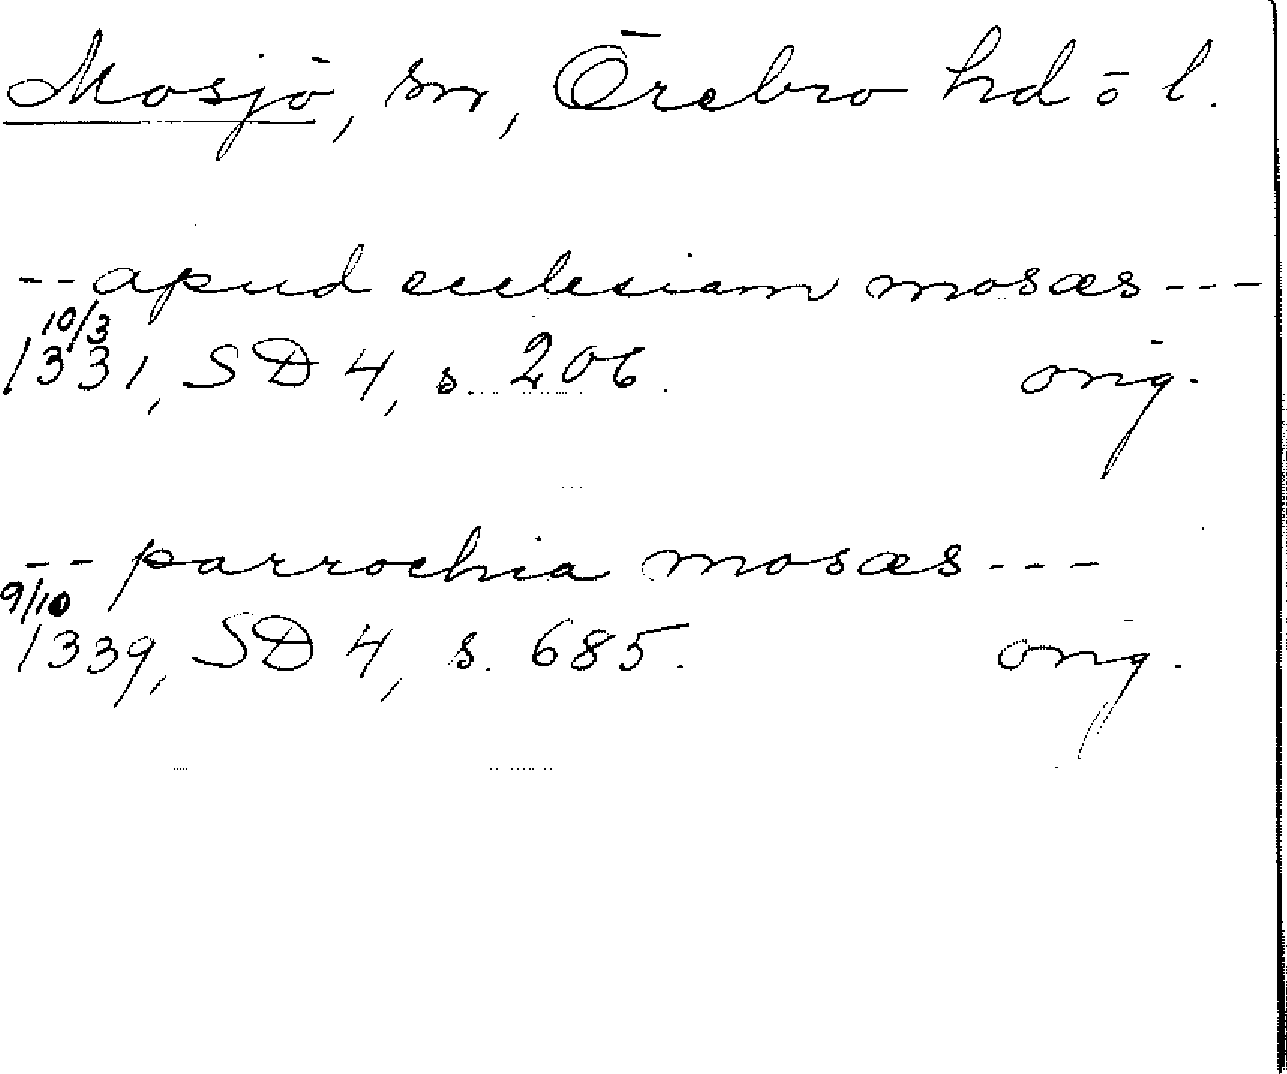 Mosjö, sn, Örebro hd ö l.
-- apud ecclesiam mosæs ---
10/3
1331, SD 4, s. 206. orig.
-- parrochia mosæs ---
9/10
1339, SD 4, s. 685. orig.